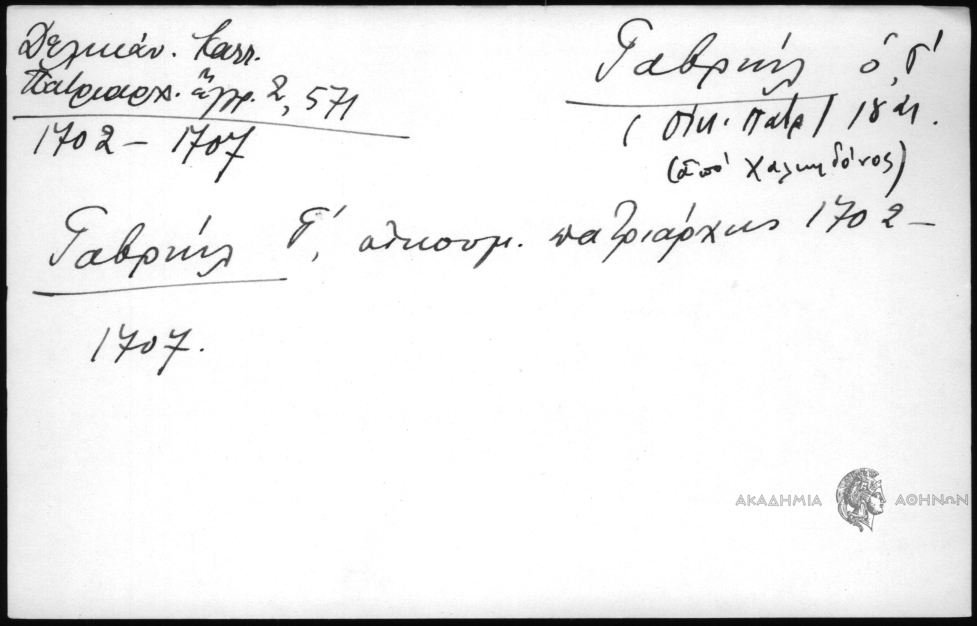 Δελικάν. Κατλ.
Πατριαρχ. ἔγγρ. 2, 571
1702 – 1707
Γαβριήλ ὁ, Γ΄
(Οἰκ. Πατρ)
(ἀπό Χαλκηδόνος)
Γαβριήλ Γ΄, οἰκουμ. πατριάρχης 1702 –
1707.
ΑΚΑΔΗΜΙΑ ΑΘΗΝΩΝ